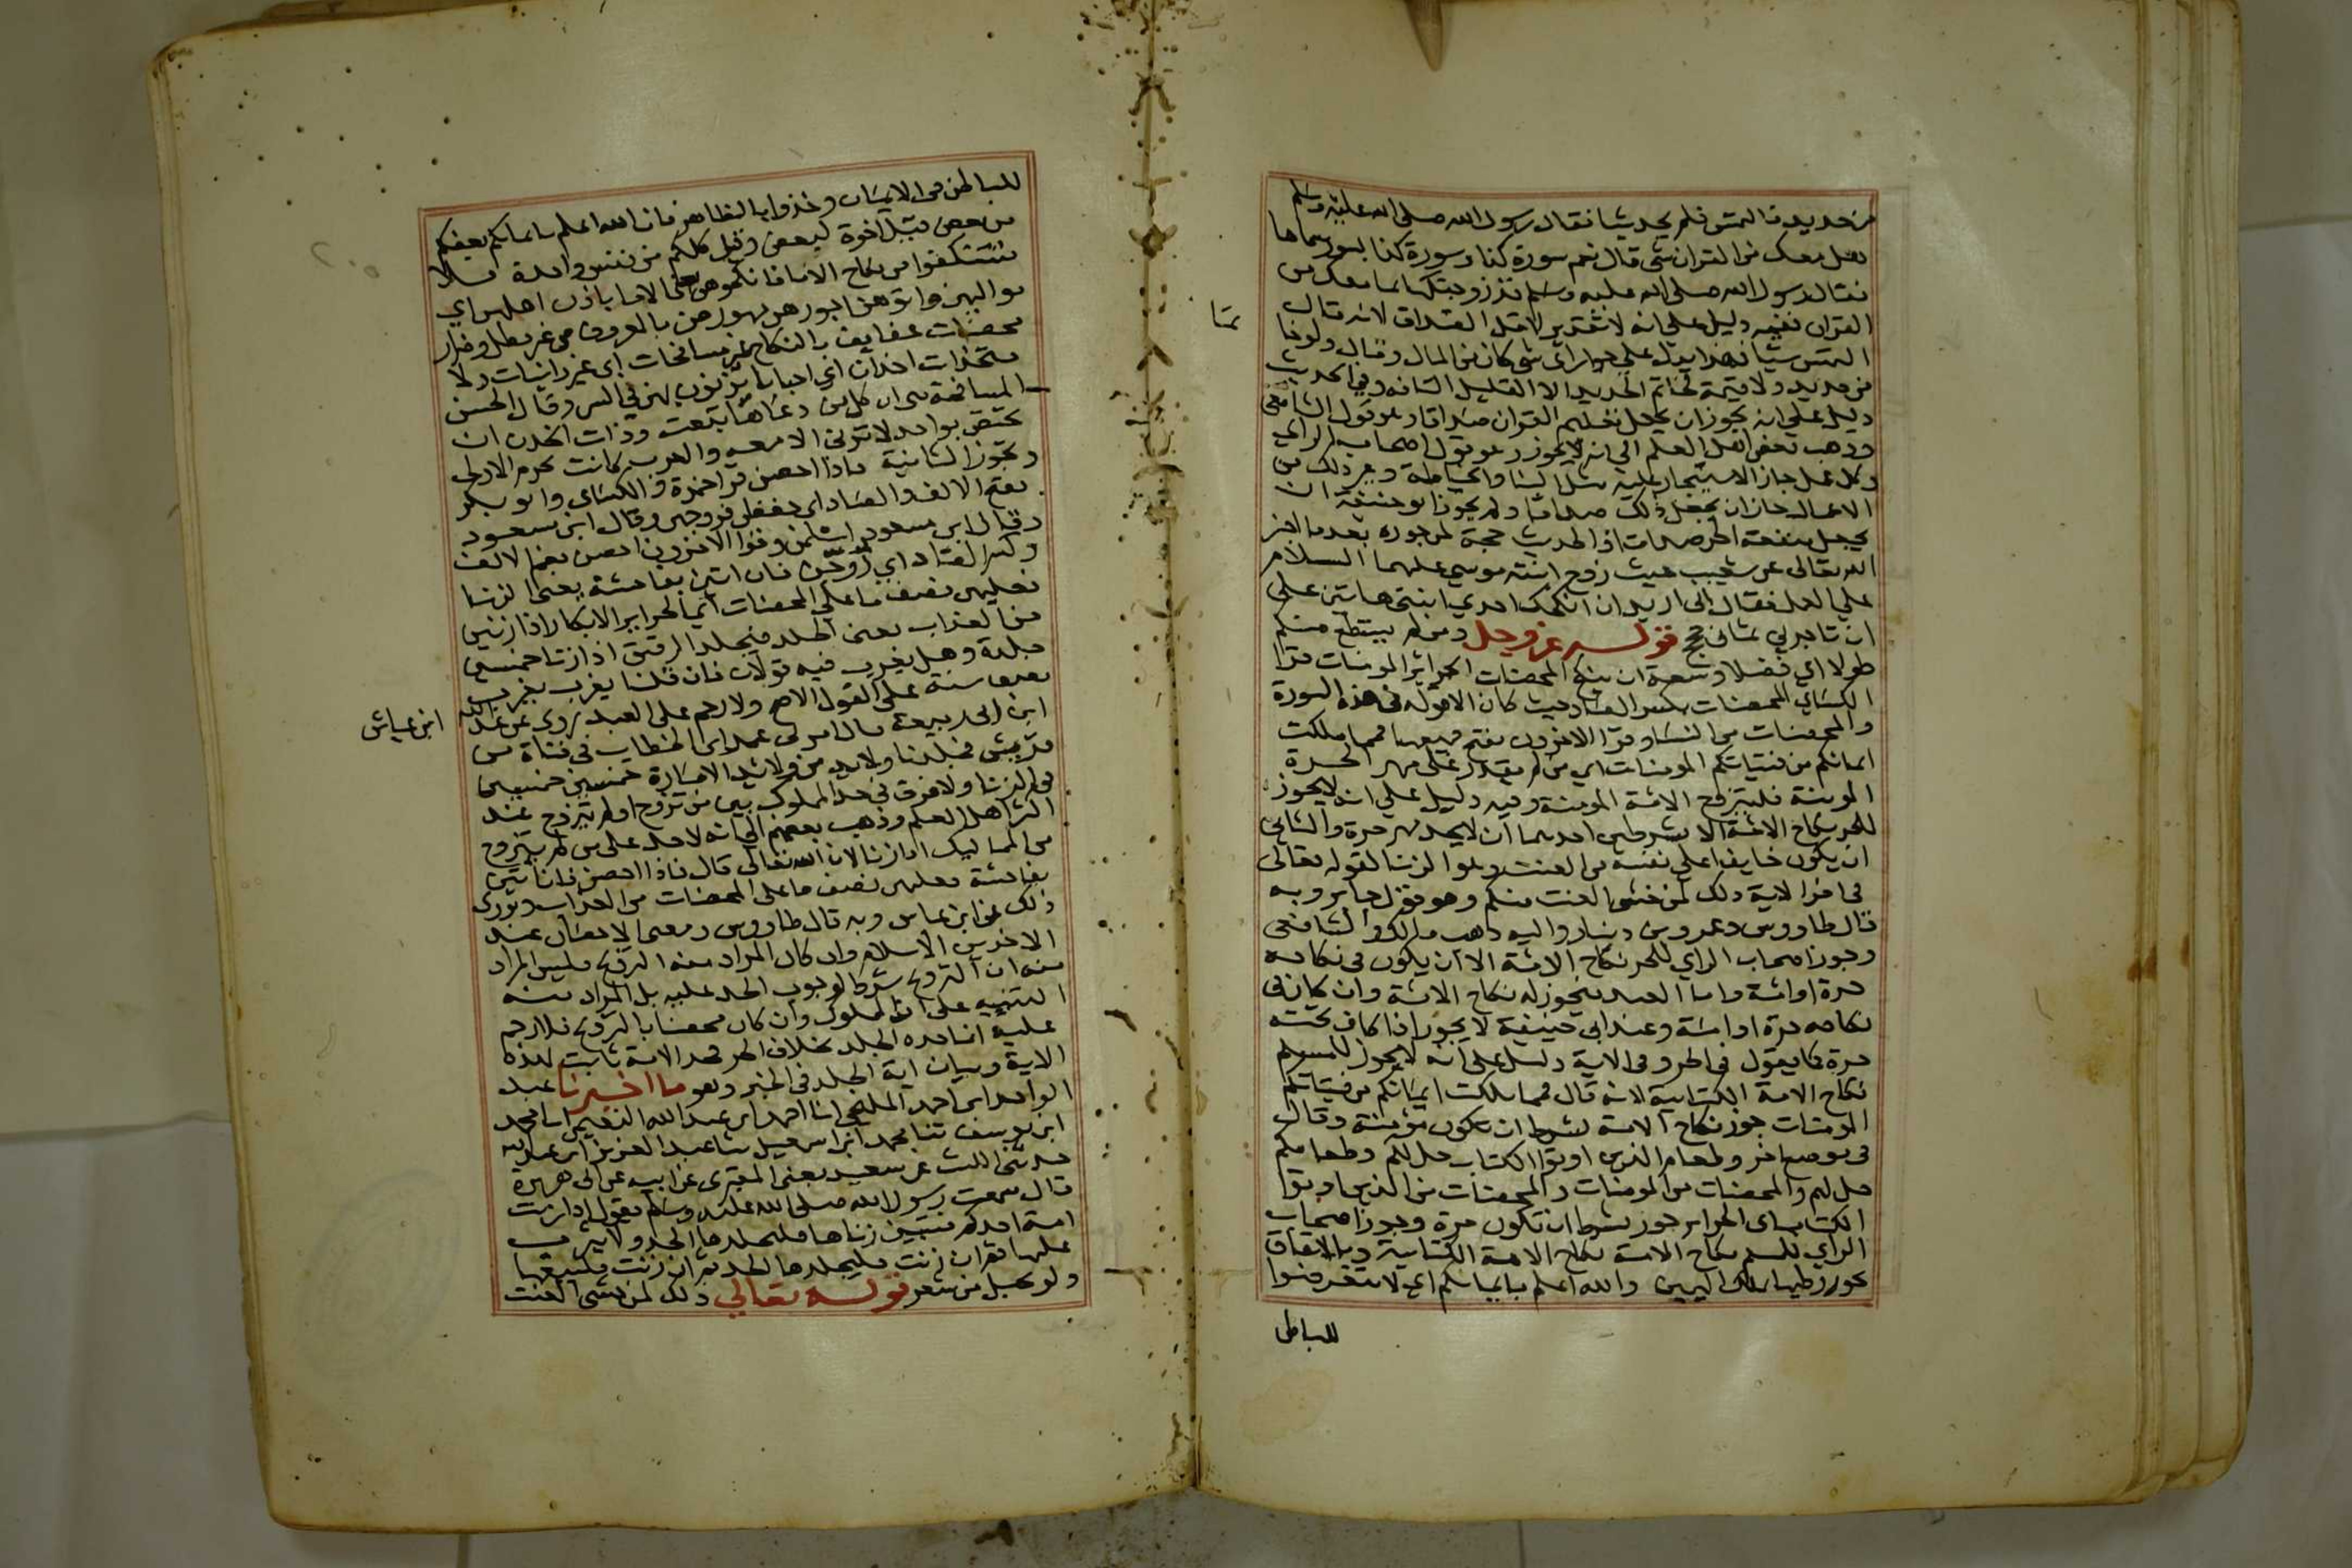 من حديد فالتمس فلم يجد شيا فقال رسول الله صلى الله عليه وسلم
هل معك من القران شى قال نعم سورة كذا وسورة كذا لسور سماها
فقال رسول الله صلى الله عليه وسلم قد زوجتكها بما معك من
القران ففيه دليل على انه لا تقدير لاقل الصداق لانه قال
التمس شيا فهذا يدل على جواز اى شى كان من المال وقال ولو خاتما
من حديد ولا قيمة لخاتم الحديد الا القليل التافه وفي الحديث
دليل على انه يجوز ان يجعل تعليم القران صداقا وهو قول الشافعى
وذهب بعض اهل العلم الى انه لا يجوز وهو قول اصحاب الراي
وكل عمل جاز الاستيجار عليه مثل البنا والخياطة وغير ذلك من
الاعمال جاز ان يجعل ذلك صداقا ولم يجوز ابو حنيفة ان
يجعل منفعة الحر صداقا والحديث حجة لمن جوزه بعد ما اخبر
الله تعالى عن شعيب حيث زوج ابنته موسى عليهما السلام
على العمل فقال انى اريد ان انكحك احدي ابنتى هاتين على
ان تاجرني ثمانى حجج قوله عز وجل ومن لم يستطع منكم
طولا اي فضلا وسعة ان ينكح المحصنات الحرائر المومنات قرا
الكسائي المحصنات بكسر الصاد حيث كان الا قوله فى هذه السورة
والمحصنات من النسا وقرا الاخرون بفتح جميعها فمما ملكت
ايمانكم من فتياتكم المومنات اي من لم يقدر على مهر الحرة
المومنة فليتزوج الامة المومنة وفيه دليل على انه لا يجوز
للحر نكاح الامة الا بشرطين احدهما ان لا يجد مهر حرة والثانى
ان يكون خايفا على نفسه من العنت وهو الزنا لقوله تعالى
فى اخر الاية ذلك لمن خشى العنت منكم وهو قول جابر وبه
قال طاووس وعمرو بن دينار واليه ذهب مالك والشافعى
وجوز اصحاب الراي للحر نكاح الامة الا ان يكون فى نكاحه
حرة او امة واما العبد فيجوز له نكاح الامة وان كان فى
نكاحه حرة او امة وعند ابى حنيفة لا يجوز اذا كان تحته
حرة كما يقول فى الحر وفى الاية دليل على انه لا يجوز للمسلم
نكاح الامة الكتابية لانه قال فمما ملكت ايمانكم من فتياتكم
المومنات جوز نكاح الامة بشرط ان تكون مؤمنة وقال
فى موضع اخر وطعام الذين اوتوا الكتاب حل لكم وطعامكم
حل لهم والمحصنات من المومنات والمحصنات من الذين اوتوا
الكتاب اى الحراير جوز بشرط ان تكون حرة وجوز اصحاب
الراي للمسلم نكاح الامة الكتابية وبالاتفاق
يجوز وطيها بملك اليمين والله اعلم بايمانكم اي لا تتعرضوا
للباطن
للباطن فى الايمان وخذوا بالظاهر فان الله اعلم بايمانكم بعضكم
من بعض قيل اخوة لبعض وقيل كلكم من نفس واحدة فلا
تستنكفوا من نكاح الاما فانكحوهن يعنى الاما باذن اهلهن اي
مواليهن واتوهن اجورهن مهورهن بالمعروف من غير مطل وضرار
محصنات عفايف بالنكاح غير مسافحات اى غير زانيات ولا
متخذات اخدان اي احبابا يزنون بهن في السر وقال الحسن
المسافحة هى ان كل من دعاها تبعته وذات الخدن ان
تختص بواحد لا تزنى الا معه والعرب كانت تحرم الاولى
وتجوز الثانية فاذا احصن قرا حمزة والكسائي وابو بكر
بفتح الالف والصاد اى حفظن فروجهن وقال ابن مسعود
وقال ابن مسعود اسلمن وقرا الاخرون احصن بضم الالف
وكسر الصاد اي زوجن فان اتين بفاحشة يعنى الزنا
فعليهن نصف ما على المحصنات اي الحراير الابكار اذا زنين
من العذاب يعنى الجلد فيجلد الرقيق اذا زنا خمسين
جلدة وهل يغرب فيه قولان فان قلنا يغرب يغرب
نصف سنة على القول الاصح ولا رجم على العبد روى عن عبد الله
ابن عياش
ابن ابى ربيعة قال امرنى عمر ابن الخطاب فى فتاة من
قريش فجلدنا ولايد من ولايد الامارة خمسين خمسين
فى الزنا ولا فرق فى حد المملوك بين من تزوج او لم يتزوج عند
اكثر اهل العلم وذهب بعضهم الى انه لا حد على من لم يتزوج
من المماليك اذا زنا لان الله تعالى قال فاذا احصن فان اتين
بفاحشة فعليهن نصف ما على المحصنات من العذاب وروى
ذلك عن ابن عباس وبه قال طاووس ومعنى الاحصان عند
الاخرين الاسلام وان كان المراد منه التزوج فليس المراد
منه ان التزوج شرط لوجوب الحد عليه بل المراد منه
التنبيه على ان المملوك وان كان محصنا بالتزوج فلا رجم
عليه انما حده الجلد بخلاف الحر فحد الامة ثابت بهذه
الاية وبيان اية الجلد فى الخبر وهو ما اخبرنا عبد
الواحد ابن احمد المليحى انا احمد ابن عبد الله النعيمى انا محمد
ابن يوسف ثنا محمد ابن اسمعيل ثنا عبد العزيز ابن عبد الله
حدثنى الليث عن سعيد يعنى المقبري عن ابيه عن ابى هريرة
قال سمعت رسول الله صلى الله عليه وسلم يقول اذا زنت
امة احدكم فتبين زناها فليجلدها الحد ولا يثرب
عليها ثم ان زنت فليجلدها الحد ثم ان زنت فليبعها
ولو بحبل من شعر قوله تعالي ذلك لمن خشى العنت